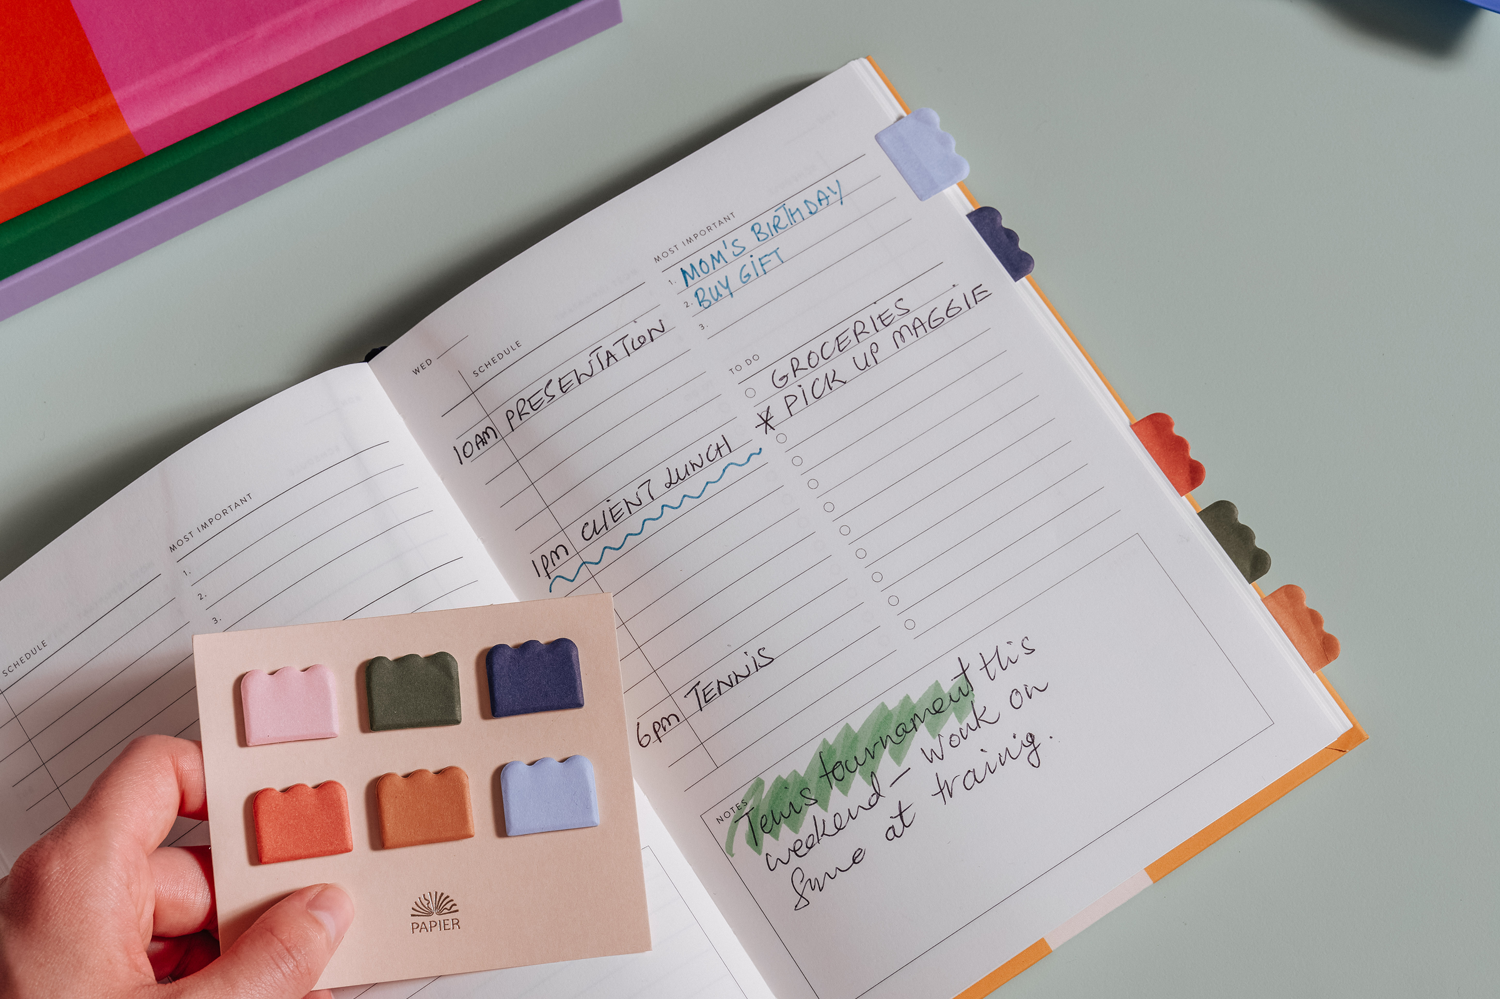 SCHEDULE
MOST IMPORTANT
1.
2.
3.
WED
SCHEDULE
10AM PRESENTATION
1pm CLIENT LUNCH
6pm TENNIS
MOST IMPORTANT
1. MOM'S BIRTHDAY
2. BUY GIFT
3.
TO DO
GROCERIES
PICK UP MAGGIE
NOTES
Tennis tournament this
weekend – wonk on
at training.
PAPIER